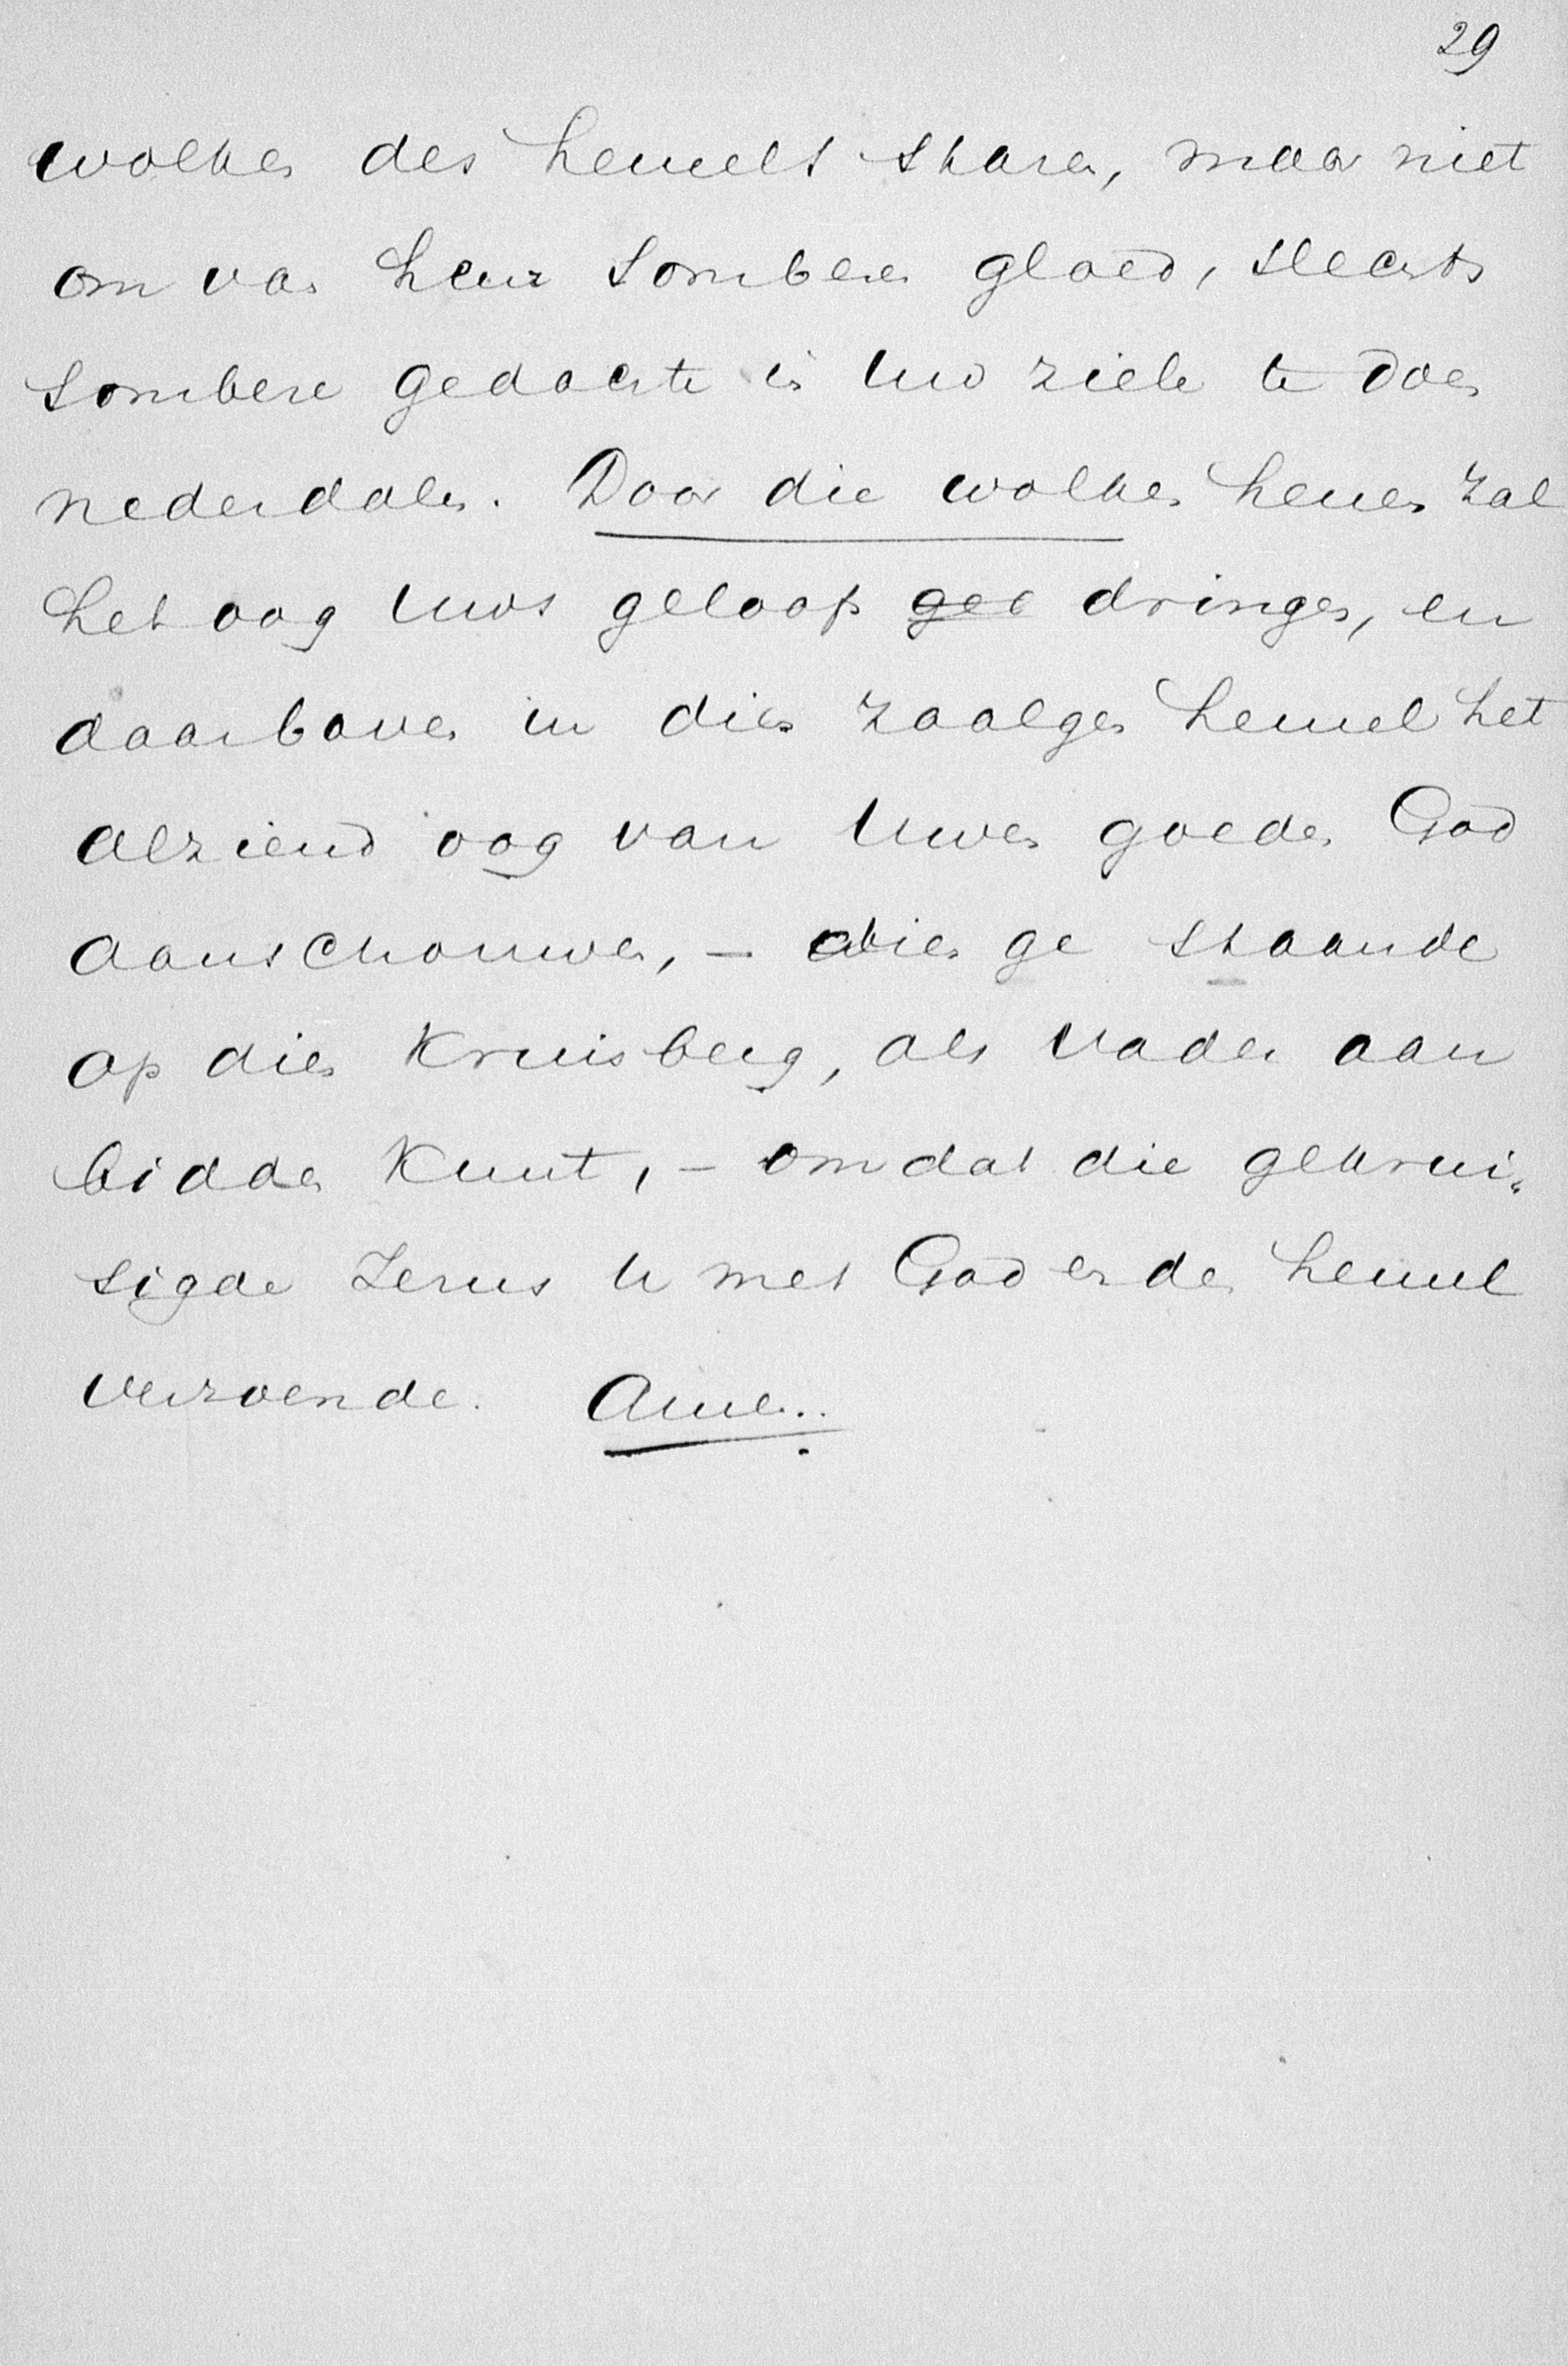 29
wolken des hemels staren, maar niet
om van heur somberen gloed, slechts
sombere gedachte in uw ziele te doen
nederdalen. Door die wolken henen zal
het oog uws geloofs gee dringen, en
daarboven in dien zaalgen hemel het
alziend oog van Uwen goeden God
aanschouwen, - dien ge staande
op dien Kruisberg, als Vader aan
bidden kunt, - omdat die gekrui-
sigde Jezus U met God en den hemel
verzoende. Amen.